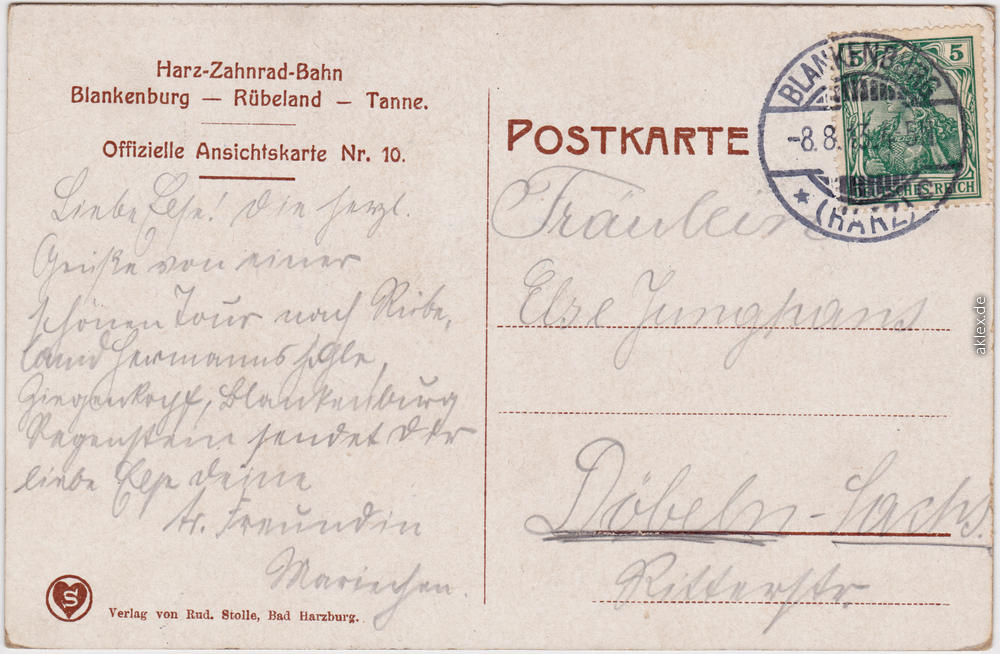 Harz-Zahnrad-Bahn
Blankenburg — Rübeland — Tanne.
Offizielle Ansichtskarte Nr. 10.
Liebe Else! Die herzl.
Grüße von einer
schönen Tour nach Rübe,
land Hermannshöhle,
Ziegenkopf, Blankenburg
Regenstein sendet Dir
liebe Else Deine
tr. Freundin
Mariechen.
Verlag von Rud. Stolle, Bad Harzburg.
S
POSTKARTE
BLANKENBURG
-8.8.13.
* (HARZ)
5 5
DEUTSCHES REICH
Fräulein
Else Junghans
Döbeln-Sachs.
Ritterstr
aklex.de